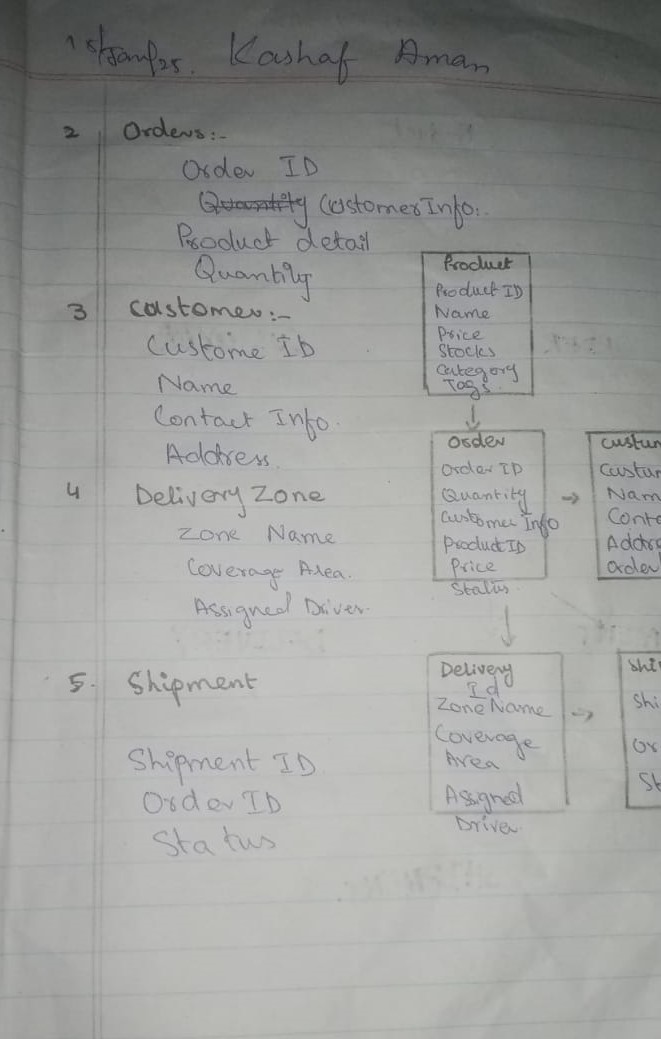 Kashaf Aman
2 Orders:-
Order ID
Quantity Customer Info.
Product detail
Quantity
3 Customer:-
Custome ID
Name
Contact Info.
Address
4 Delivery Zone
Zone Name
Coverage Area.
Assigned Driver.
5. Shipment
Shipment ID
Order ID
Status
Product
Product ID
Name
Price
Stocks
Category
Tags.
Order
Order ID
Quantity
Customer Info
Product ID
Price
Status
Custum
Custum
Nam
Conta
Addre
Order
Delivery
Id
Zone Name
Coverage
Area
Assigned
Driver
Shi
Shi
Or
St